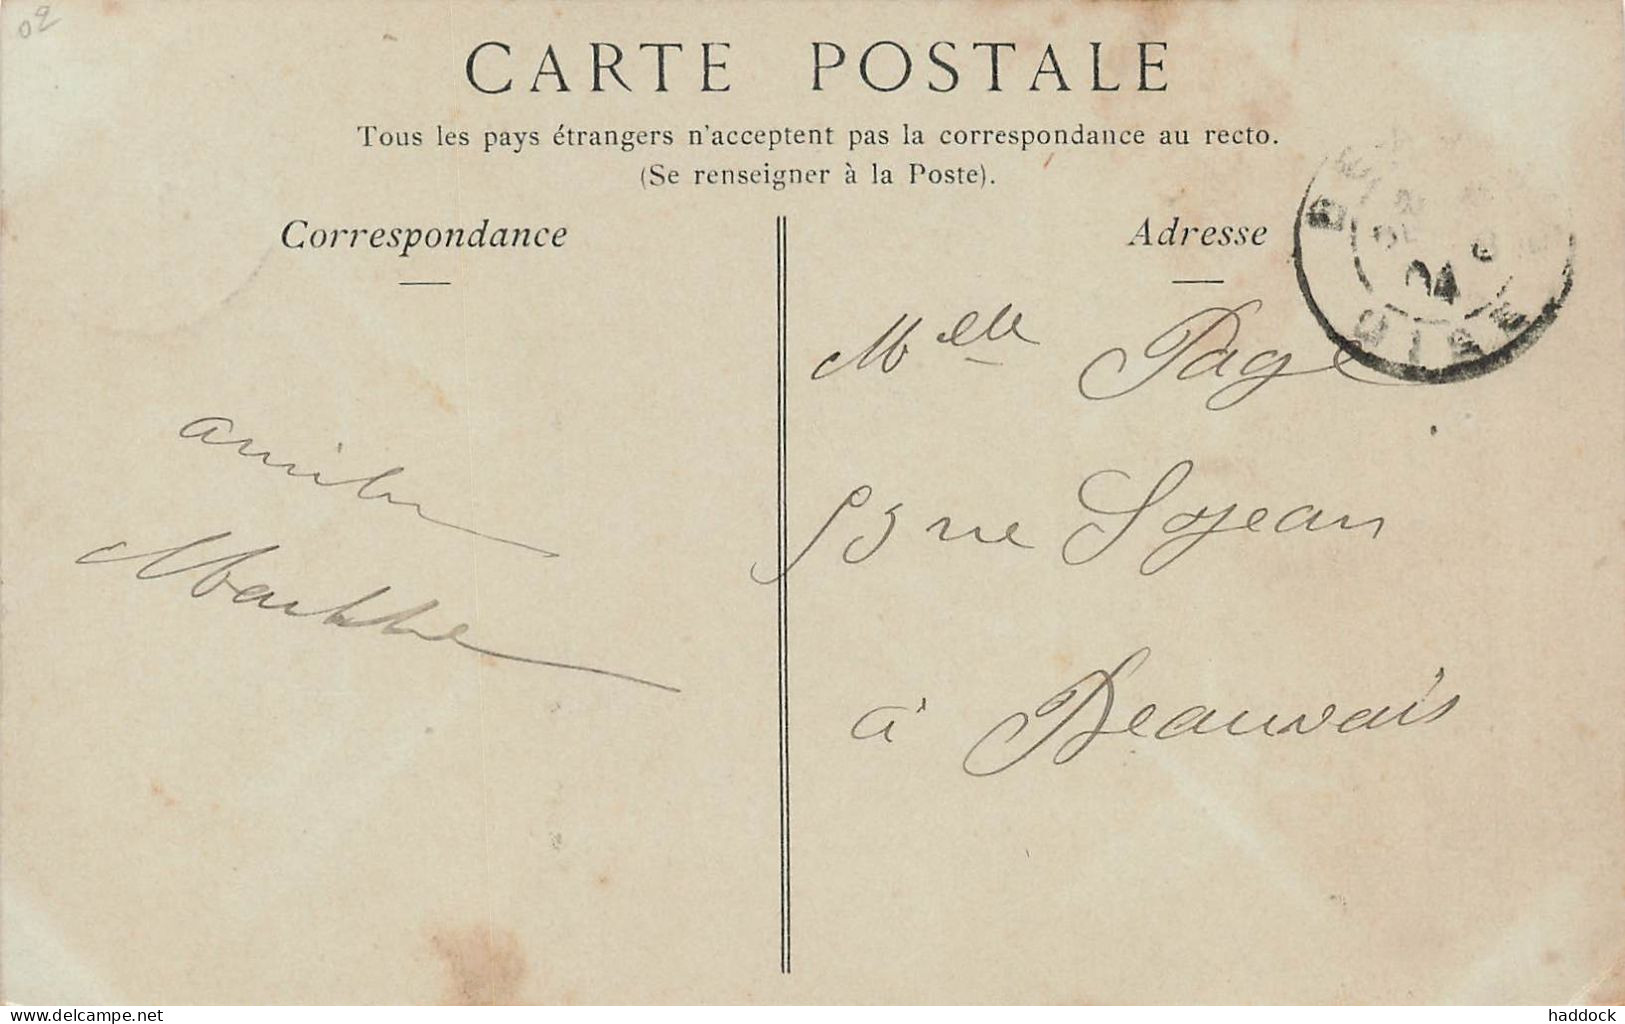 02
CARTE POSTALE
Tous les pays étrangers n'acceptent pas la correspondance au recto.
(Se renseigner à la Poste).
Correspondance
Adresse
04
OISE
Mlle Page
53 rue St Jean
à Beauvais
Marthe
www.delcampe.net
haddock